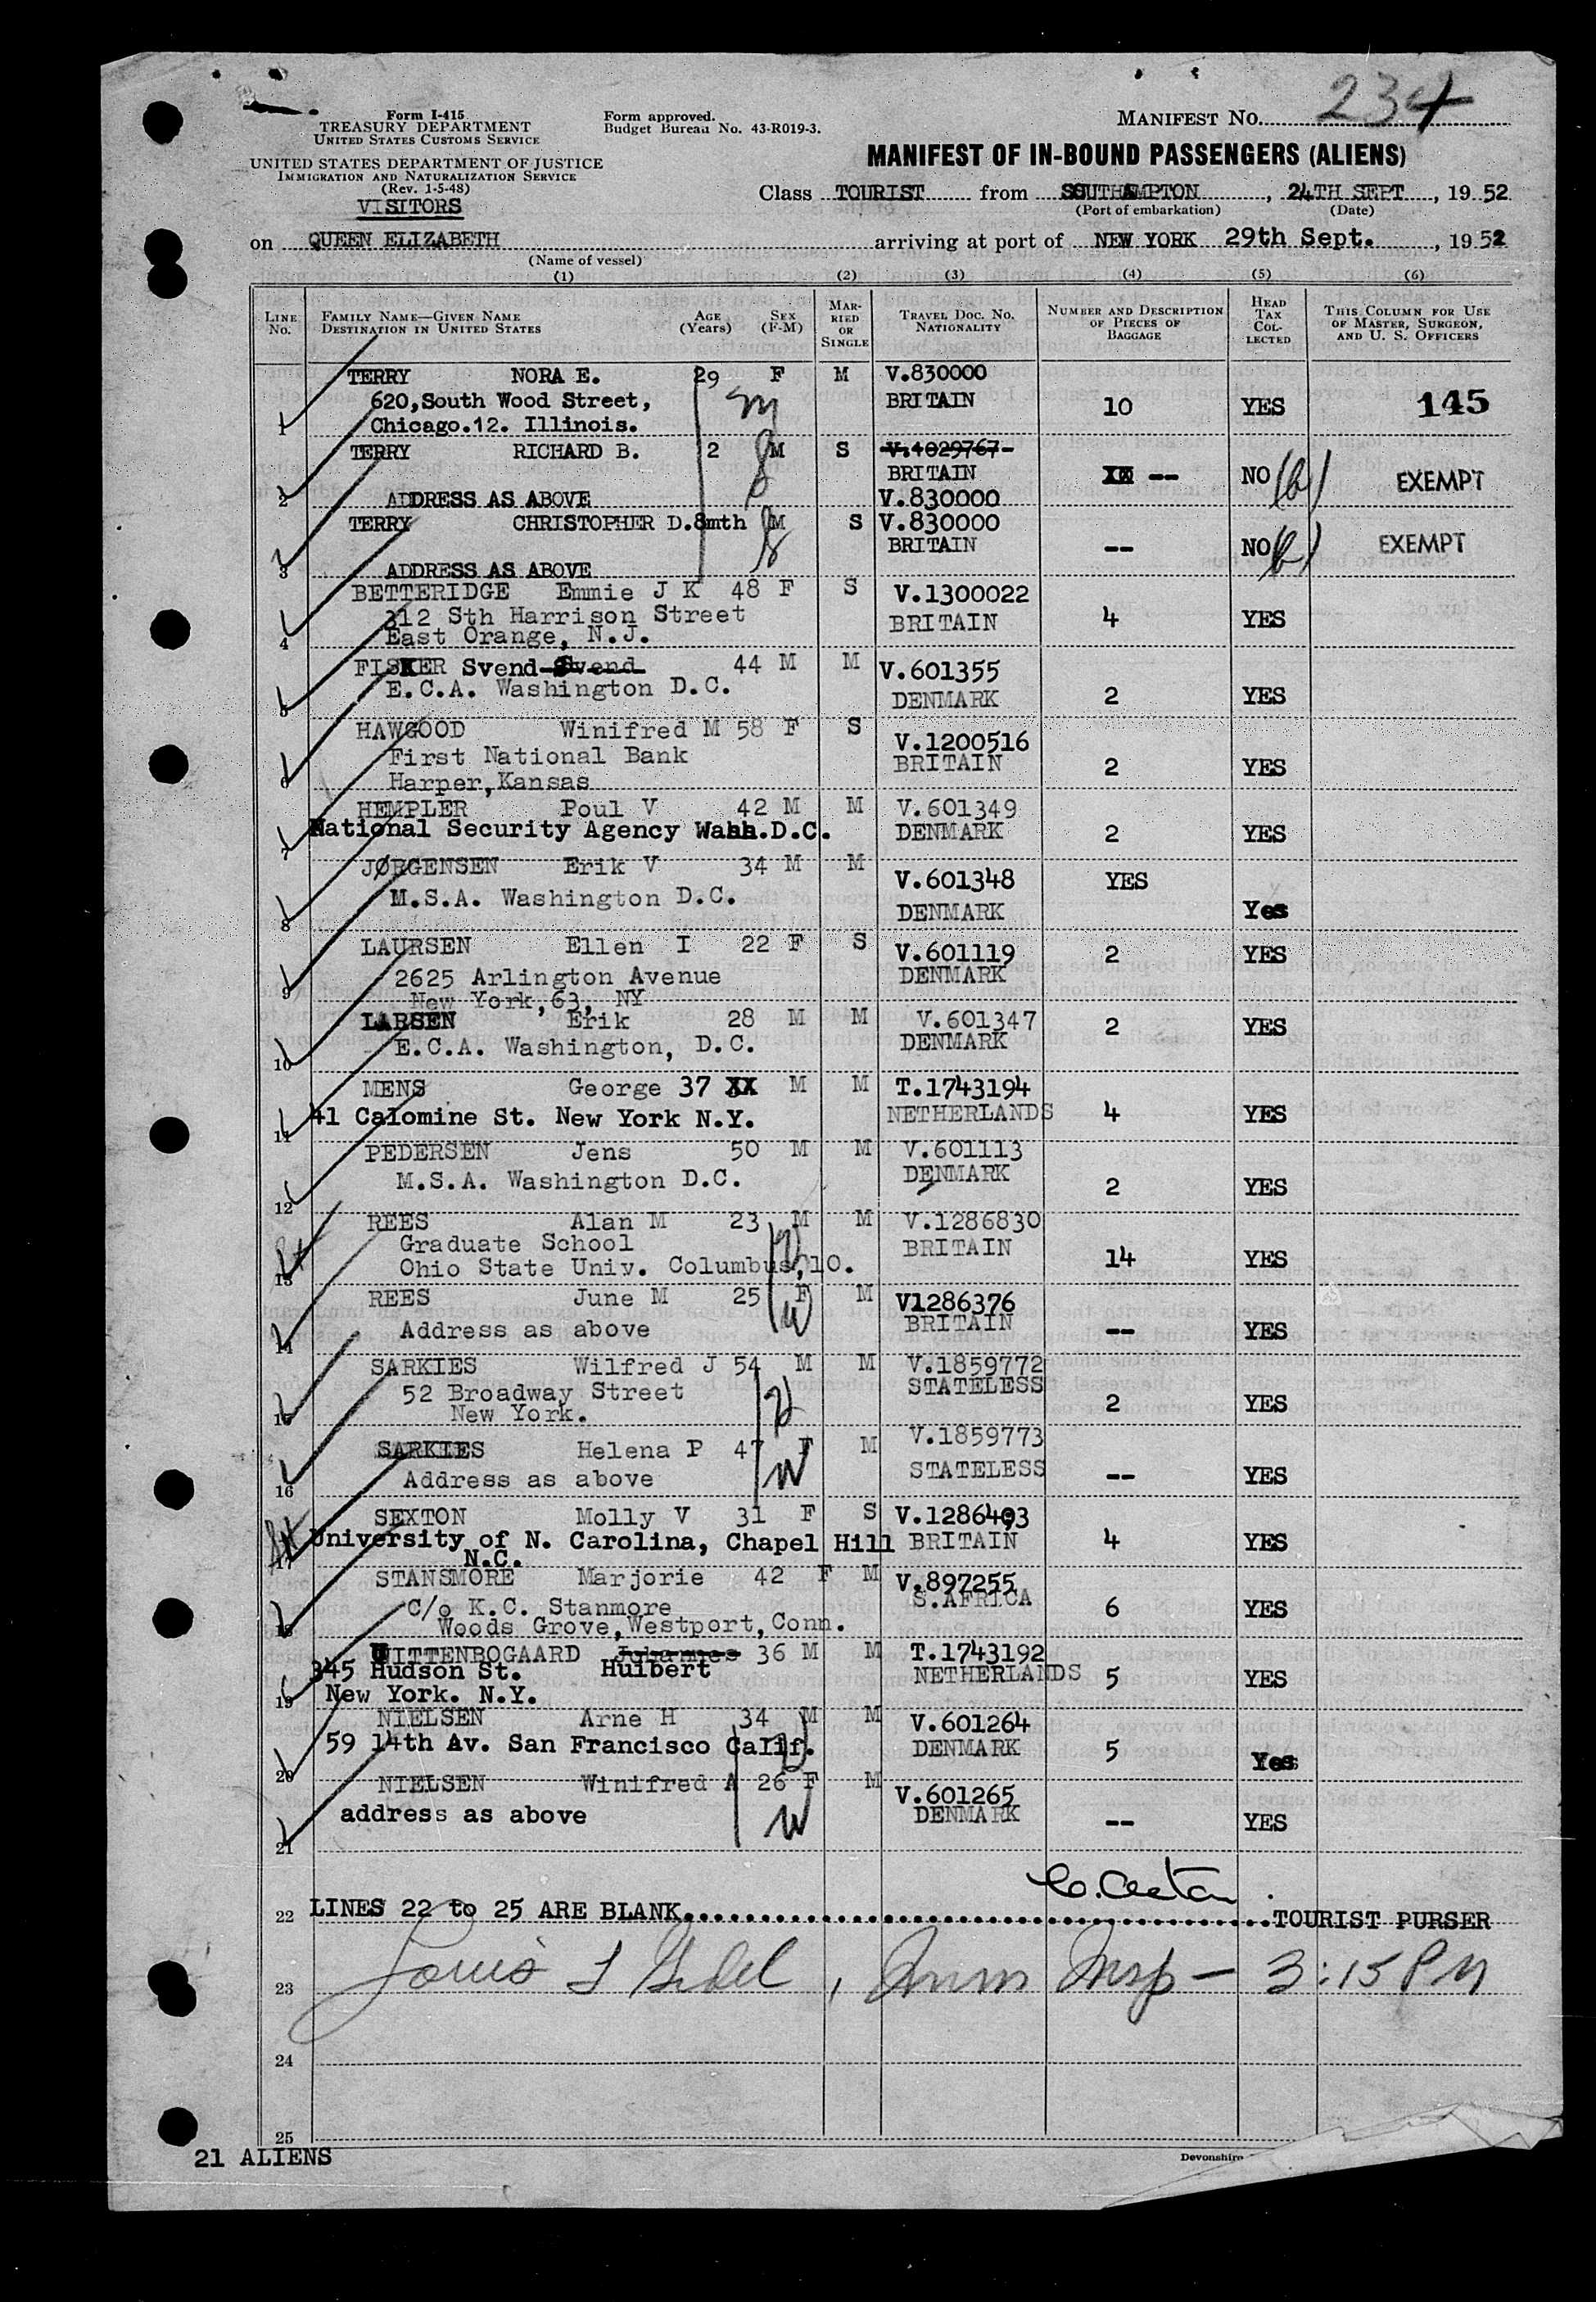 234
Form I-415
TREASURY DEPARTMENT
UNITED STATES CUSTOMS SERVICE
Form approved.
Budget Bureau No. 43-R019-3.
MANIFEST NO.
UNITED STATES DEPARTMENT OF JUSTICE
IMMIGRATION AND NATURALIZATION SERVICE
(Rev. 1-5-48)
VISITORS
MANIFEST OF IN-BOUND PASSENGERS (ALIENS)
Class TOURIST from SOUTHAMPTON, 24TH SEPT, 1952
(Port of embarkation) (Date)
on QUEEN ELIZABETH arriving at port of NEW YORK 29th Sept., 1952
(Name of vessel)
(1) (2) (3) (4) (5) (6)
LINE NO. FAMILY NAME—GIVEN NAME DESTINATION IN UNITED STATES AGE (Years) SEX (F-M) MARRIED OR SINGLE TRAVEL DOC. NO. NATIONALITY NUMBER AND DESCRIPTION OF PIECES OF BAGGAGE HEAD TAX COLLECTED THIS COLUMN FOR USE OF MASTER, SURGEON, AND U. S. OFFICERS
TERRY NORA E. 29 F M V.830000
620, South Wood Street, m BRITAIN 10 YES 145
1 Chicago.12. Illinois.
TERRY RICHARD B. 2 M S V.4029767
BRITAIN XX -- NO (b) EXEMPT
2 ADDRESS AS ABOVE V.830000
TERRY CHRISTOPHER D. 8mth M S V.830000
BRITAIN -- NO (b) EXEMPT
3 ADDRESS AS ABOVE
BETTERIDGE Emmie J K 48 F S V.1300022
312 Sth Harrison Street BRITAIN 4 YES
4 East Orange, N.J.
FISKER Svend Svend 44 M M V.601355
5 E.C.A. Washington D.C. DENMARK 2 YES
HAWGOOD Winifred M 58 F S V.1200516
First National Bank BRITAIN 2 YES
6 Harper, Kansas
HEMPLER Poul V 42 M M V.601349
7 National Security Agency Wash.D.C. DENMARK 2 YES
JØRGENSEN Erik V 34 M M V.601348 YES
8 M.S.A. Washington D.C. DENMARK Yes
LAURSEN Ellen I 22 F S V.601119 2 YES
9 2625 Arlington Avenue DENMARK
New York, 63, NY
LARSEN Erik 28 M M V.601347 2 YES
10 E.C.A. Washington, D.C. DENMARK
MENS George 37 XX M M T.1743194
11 41 Calomine St. New York N.Y. NETHERLANDS 4 YES
PEDERSEN Jens 50 M M V.601113
12 M.S.A. Washington D.C. DENMARK 2 YES
REES Alan M 23 M M V.1286830
Graduate School BRITAIN 14 YES
13 Ohio State Univ. Columbus, 10.
REES June M 25 F M V1286376
14 Address as above BRITAIN -- YES
SARKIES Wilfred J 54 M M V.1859772
52 Broadway Street STATELESS 2 YES
15 New York.
SARKIES Helena P 47 F M V.1859773
16 Address as above STATELESS -- YES
SEXTON Molly V 31 F S V.1286493
17 University of N. Carolina, Chapel Hill BRITAIN 4 YES
N.C.
STANSMORE Marjorie 42 F M V.897255
C/o K.C. Stanmore S.AFRICA 6 YES
18 Woods Grove, Westport, Conn.
UITTENBOGAARD Johannes 36 M M T.1743192
345 Hudson St. Huibert NETHERLANDS 5 YES
19 New York. N.Y.
NIELSEN Arne H 34 M M V.601264
20 59 14th Av. San Francisco Calif. DENMARK 5 Yes
NIELSEN Winifred A 26 F M V.601265
21 address as above DENMARK -- YES
22 LINES 22 to 25 ARE BLANK. TOURIST PURSER
23 Louis, Imm Insp - 3:15 PM
24
25
21 ALIENS
Devonshire